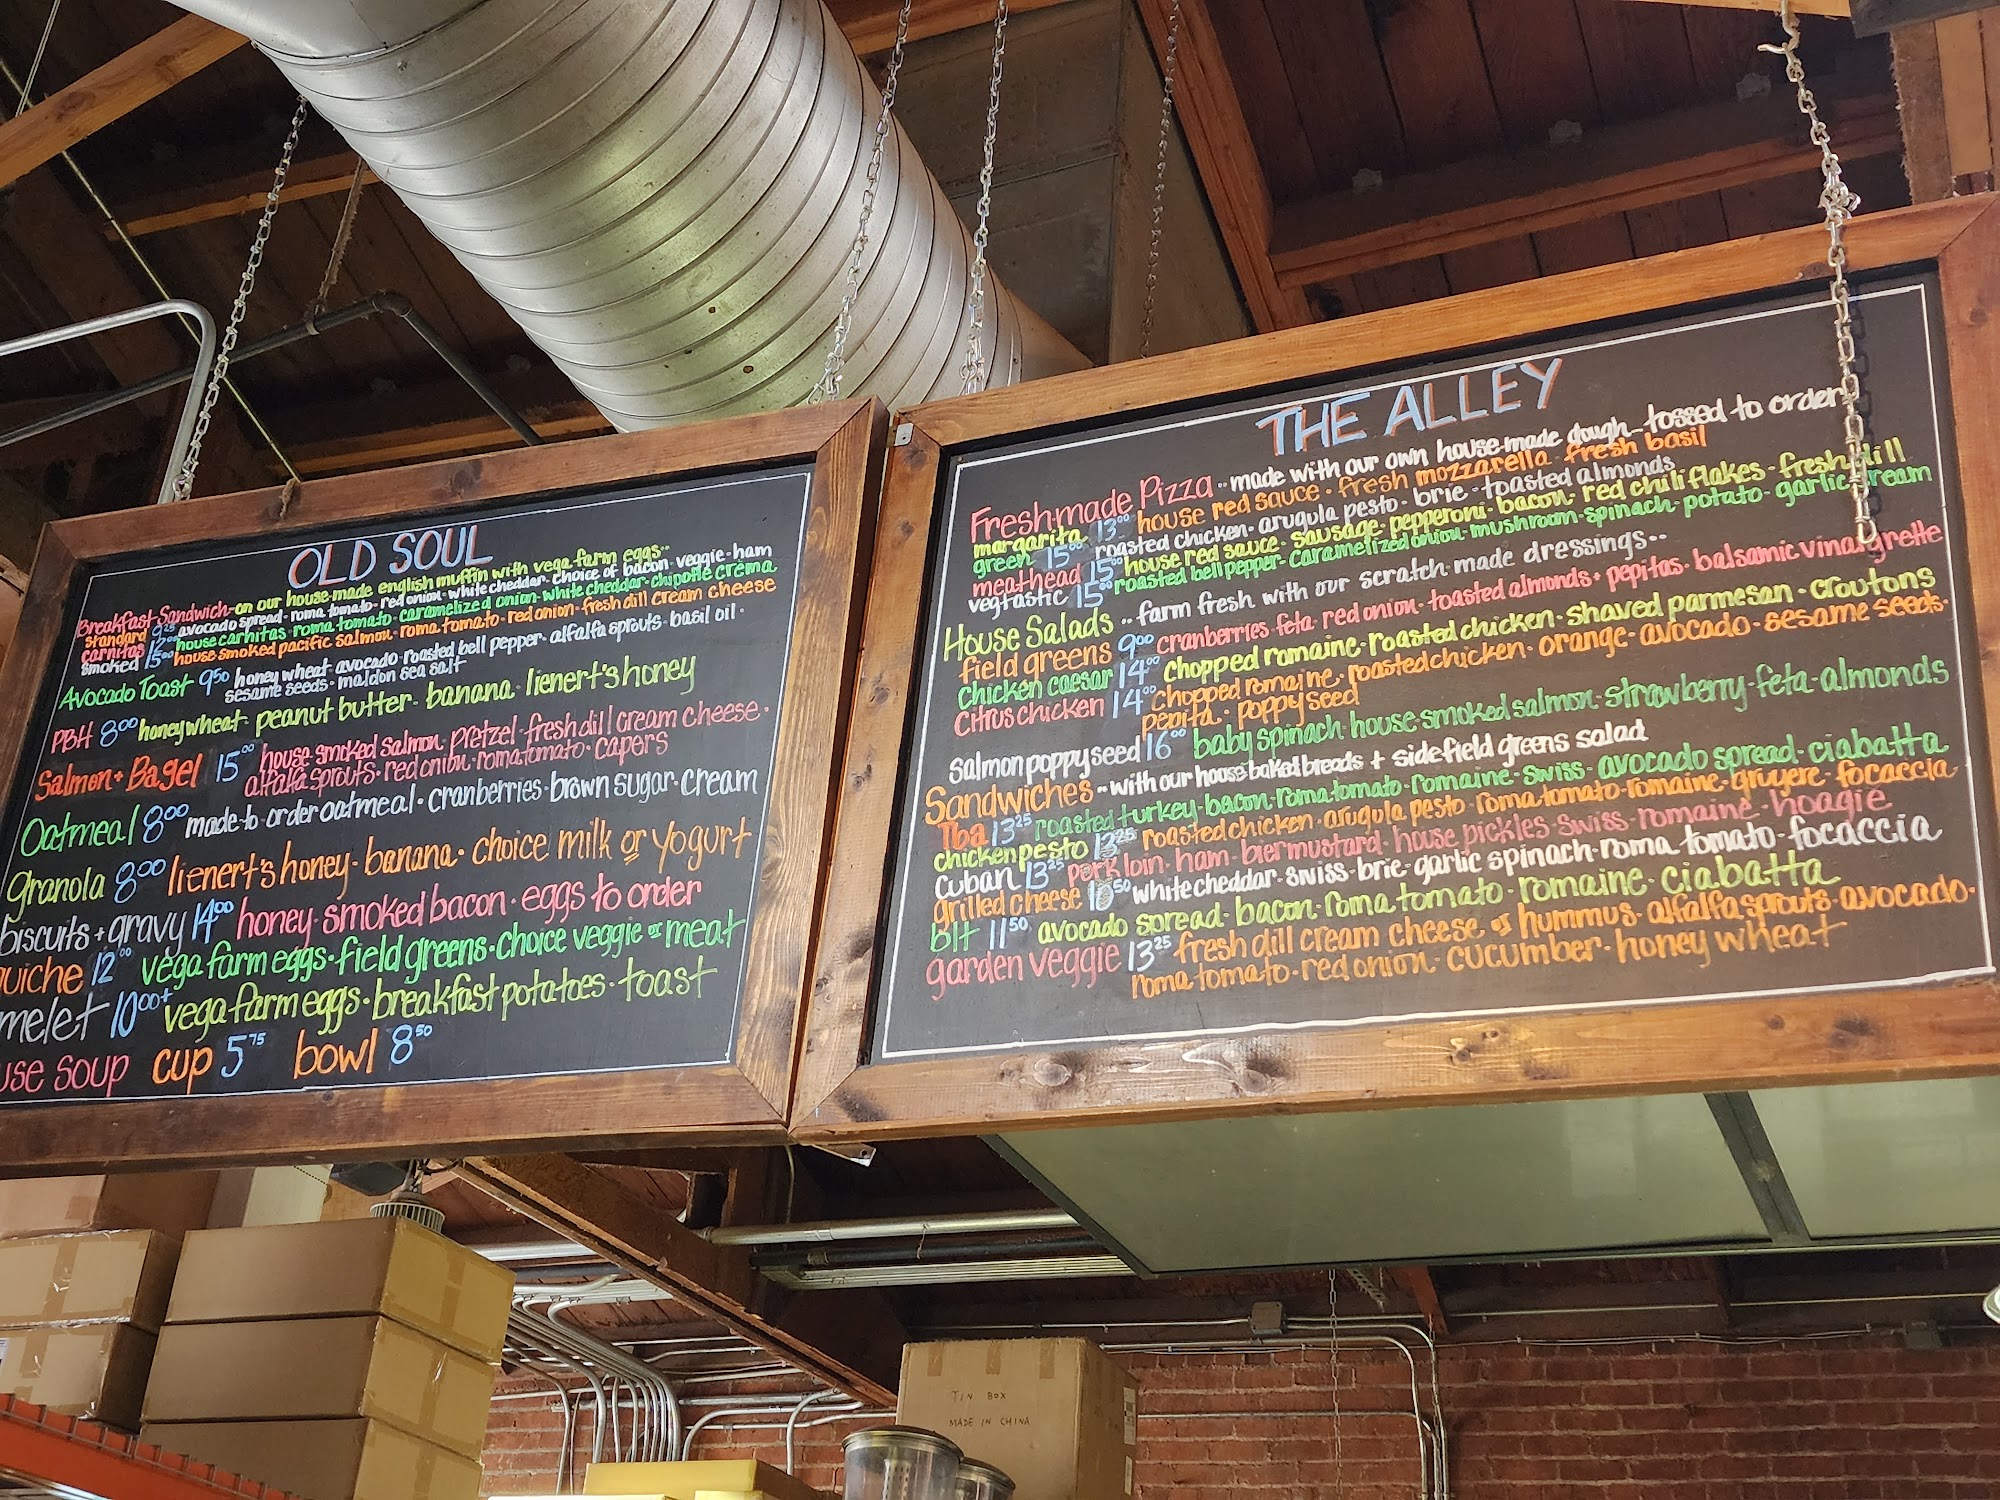 OLD SOUL
Breakfast Sandwich - on our house-made english muffin with vega farm eggs..
standard 9²⁵ avocado spread · roma tomato · red onion · white cheddar · choice of bacon · veggie · ham
carnitas 12⁰⁰ house carnitas · roma tomato · caramelized onion · white cheddar · chipotle crema
smoked 15⁰⁰ house smoked pacific salmon · roma tomato · red onion · fresh dill cream cheese
Avocado Toast 9⁵⁰ honey wheat · avocado · roasted bell pepper · alfalfa sprouts · basil oil ·
sesame seeds · maldon sea salt
PBH 8⁰⁰ honey wheat · peanut butter · banana · lienert's honey
Salmon + Bagel 15⁰⁰ house-smoked salmon · pretzel · fresh dill cream cheese ·
alfalfa sprouts · red onion · roma tomato · capers
Oatmeal 8⁰⁰ made-to-order oatmeal · cranberries · brown sugar · cream
Granola 8⁰⁰ lienert's honey · banana · choice milk or yogurt
biscuits + gravy 14⁰⁰ honey-smoked bacon · eggs to order
uiche 12⁰⁰ vega farm eggs · field greens · choice veggie or meat
melet 10⁰⁰⁺ vega farm eggs · breakfast potatoes · toast
use soup cup 5⁷⁵ bowl 8⁵⁰
THE ALLEY
Fresh-made Pizza .. made with our own house-made dough - tossed to order
margarita 13⁰⁰ house red sauce · fresh mozzarella · fresh basil
green 15⁰⁰ roasted chicken · arugula pesto · brie · toasted almonds
meathead 15⁰⁰ house red sauce · sausage · pepperoni · bacon · red chili flakes · fresh dill
vegtastic 15⁰⁰ roasted bell pepper · caramelized onion · mushroom · spinach · potato · garlic cream
House Salads .. farm fresh with our scratch-made dressings..
field greens 9⁰⁰ cranberries · feta · red onion · toasted almonds · pepitas · balsamic vinaigrette
chicken caesar 14⁰⁰ chopped romaine · roasted chicken · shaved parmesan · croutons
citrus chicken 14⁰⁰ chopped romaine · roasted chicken · orange · avocado · sesame seeds ·
pepita · poppy seed
salmon poppy seed 16⁰⁰ baby spinach · house-smoked salmon · strawberry · feta · almonds
Sandwiches .. with our house baked breads + side field greens salad
Tba 13²⁵ roasted turkey · bacon · roma tomato · romaine · swiss · avocado spread · ciabatta
chicken pesto 13²⁵ roasted chicken · arugula pesto · roma tomato · romaine · gruyere · focaccia
cuban 13²⁵ pork loin · ham · bier mustard · house pickles · swiss · romaine · hoagie
grilled cheese 10⁵⁰ white cheddar · swiss · brie · garlic spinach · roma tomato · focaccia
blt 11⁵⁰ avocado spread · bacon · roma tomato · romaine · ciabatta
garden veggie 13²⁵ fresh dill cream cheese or hummus · alfalfa sprouts · avocado ·
roma tomato · red onion · cucumber · honey wheat
TIN BOX
MADE IN CHINA